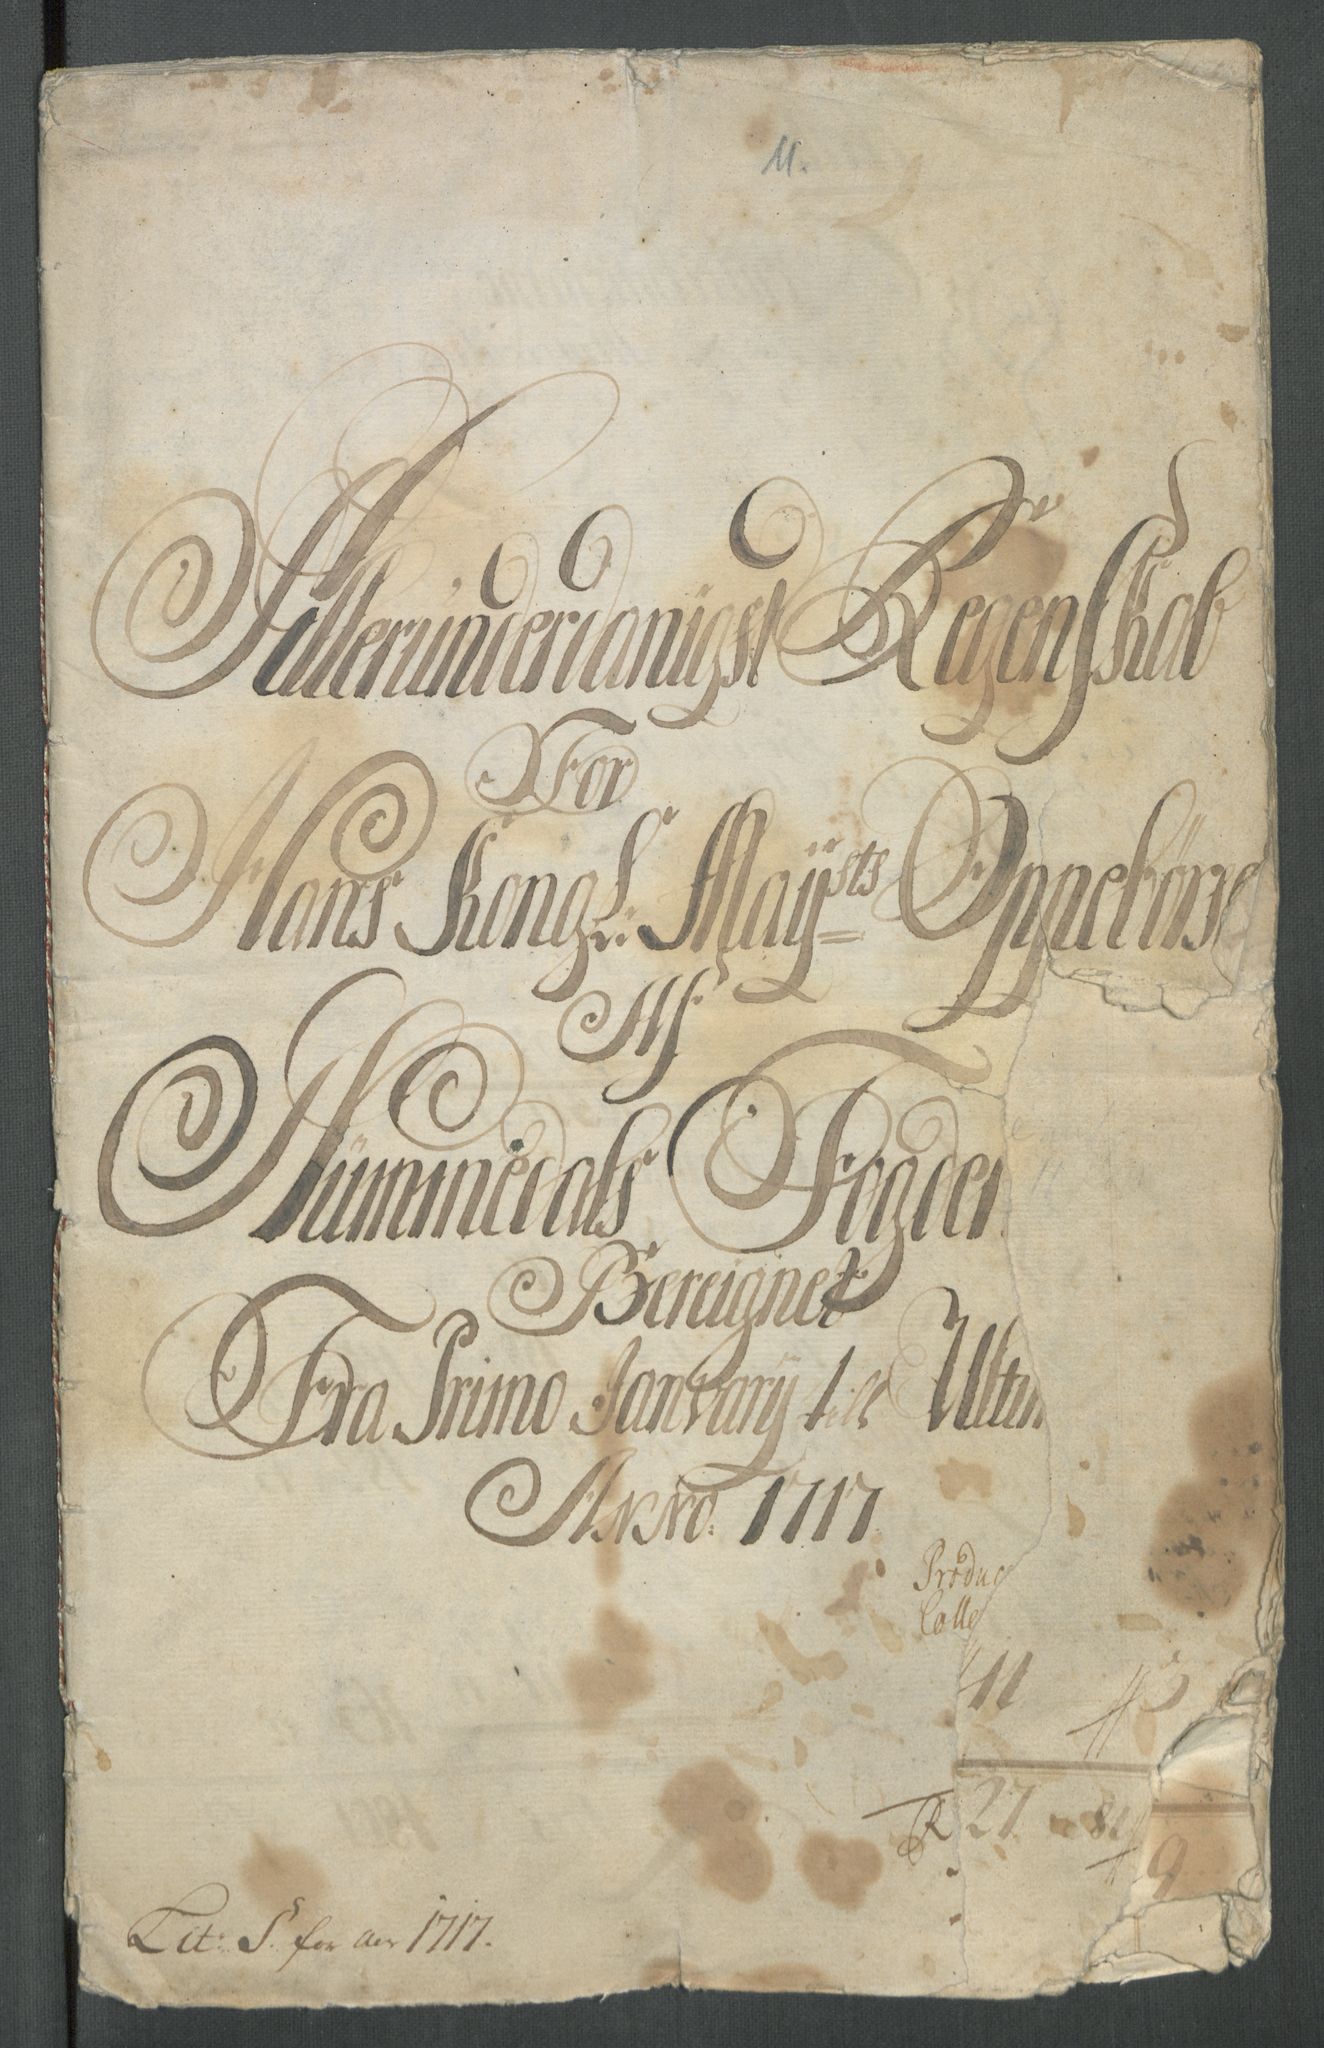 11.
Alleründerdanigst Regenskab
For
Hans Kongl: Maysts Oppebörse
Af
Nümmedals Fogder
Bereignet
Fra Primo Januarij till Ultim
Anno. 1717
Produc
Colle
11
27
9
Lit: S. for aar 1717.